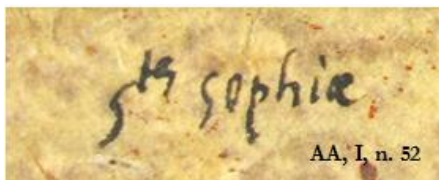 Sᵗᵉ Sophiæ
AA, I, n. 52